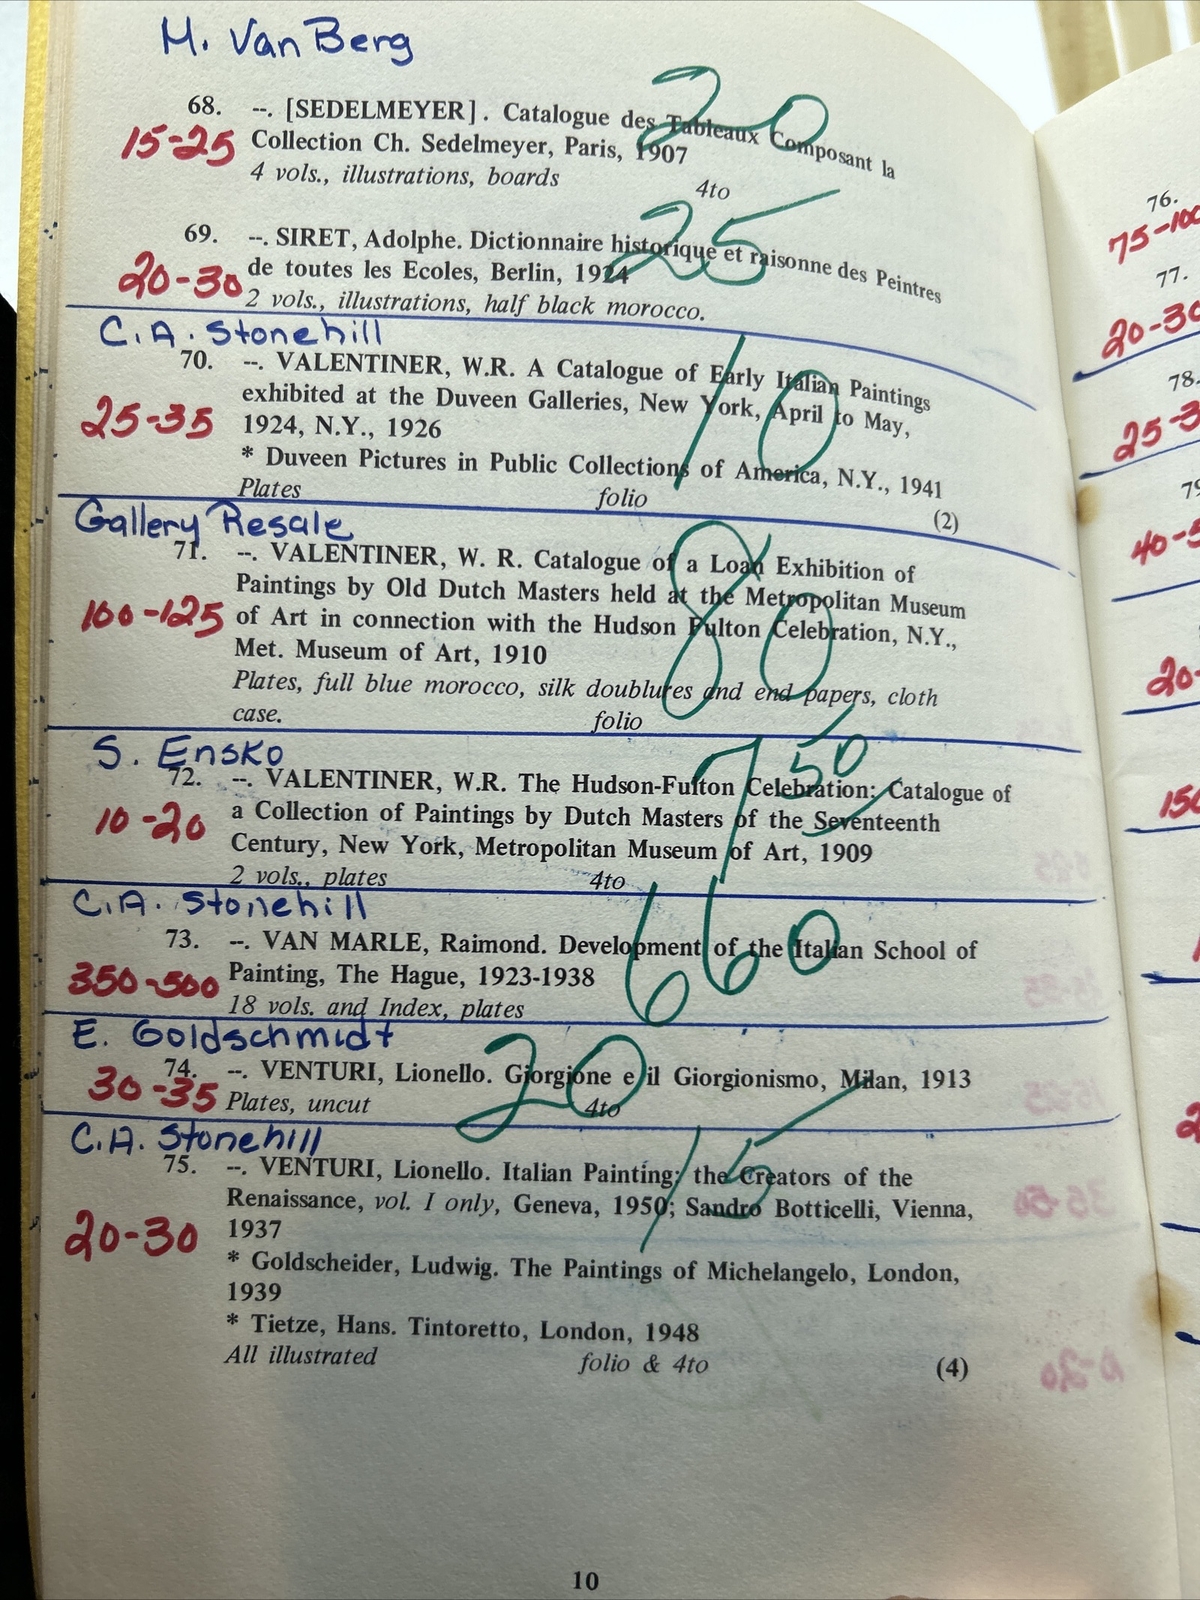 M. Van Berg
20
68. --. [SEDELMEYER]. Catalogue des Tableaux Composant la
15-25 Collection Ch. Sedelmeyer, Paris, 1907
4 vols., illustrations, boards 4to
25
69. --. SIRET, Adolphe. Dictionnaire historique et raisonne des Peintres
20-30 de toutes les Ecoles, Berlin, 1924
2 vols., illustrations, half black morocco.
C.A. Stonehill
10
70. --. VALENTINER, W.R. A Catalogue of Early Italian Paintings
exhibited at the Duveen Galleries, New York, April to May,
25-35 1924, N.Y., 1926
* Duveen Pictures in Public Collections of America, N.Y., 1941
Plates folio (2)
Gallery Resale
80
71. --. VALENTINER, W. R. Catalogue of a Loan Exhibition of
Paintings by Old Dutch Masters held at the Metropolitan Museum
100-125 of Art in connection with the Hudson Fulton Celebration, N.Y.,
Met. Museum of Art, 1910
Plates, full blue morocco, silk doublures and end papers, cloth
case. folio
S. Ensko
7 50
72. --. VALENTINER, W.R. The Hudson-Fulton Celebration: Catalogue of
10-20 a Collection of Paintings by Dutch Masters of the Seventeenth
Century, New York, Metropolitan Museum of Art, 1909
2 vols., plates 4to
C.A. Stonehill
660
73. --. VAN MARLE, Raimond. Development of the Italian School of
350-500 Painting, The Hague, 1923-1938
18 vols. and Index, plates
E. Goldschmidt
20
74. --. VENTURI, Lionello. Giorgione e il Giorgionismo, Milan, 1913
30-35 Plates, uncut 4to
C.A. Stonehill
15
75. --. VENTURI, Lionello. Italian Painting: the Creators of the
Renaissance, vol. I only, Geneva, 1950; Sandro Botticelli, Vienna,
20-30 1937
* Goldscheider, Ludwig. The Paintings of Michelangelo, London,
1939
* Tietze, Hans. Tintoretto, London, 1948
All illustrated folio & 4to (4)
10
76.
75-100
77.
20-30
78.